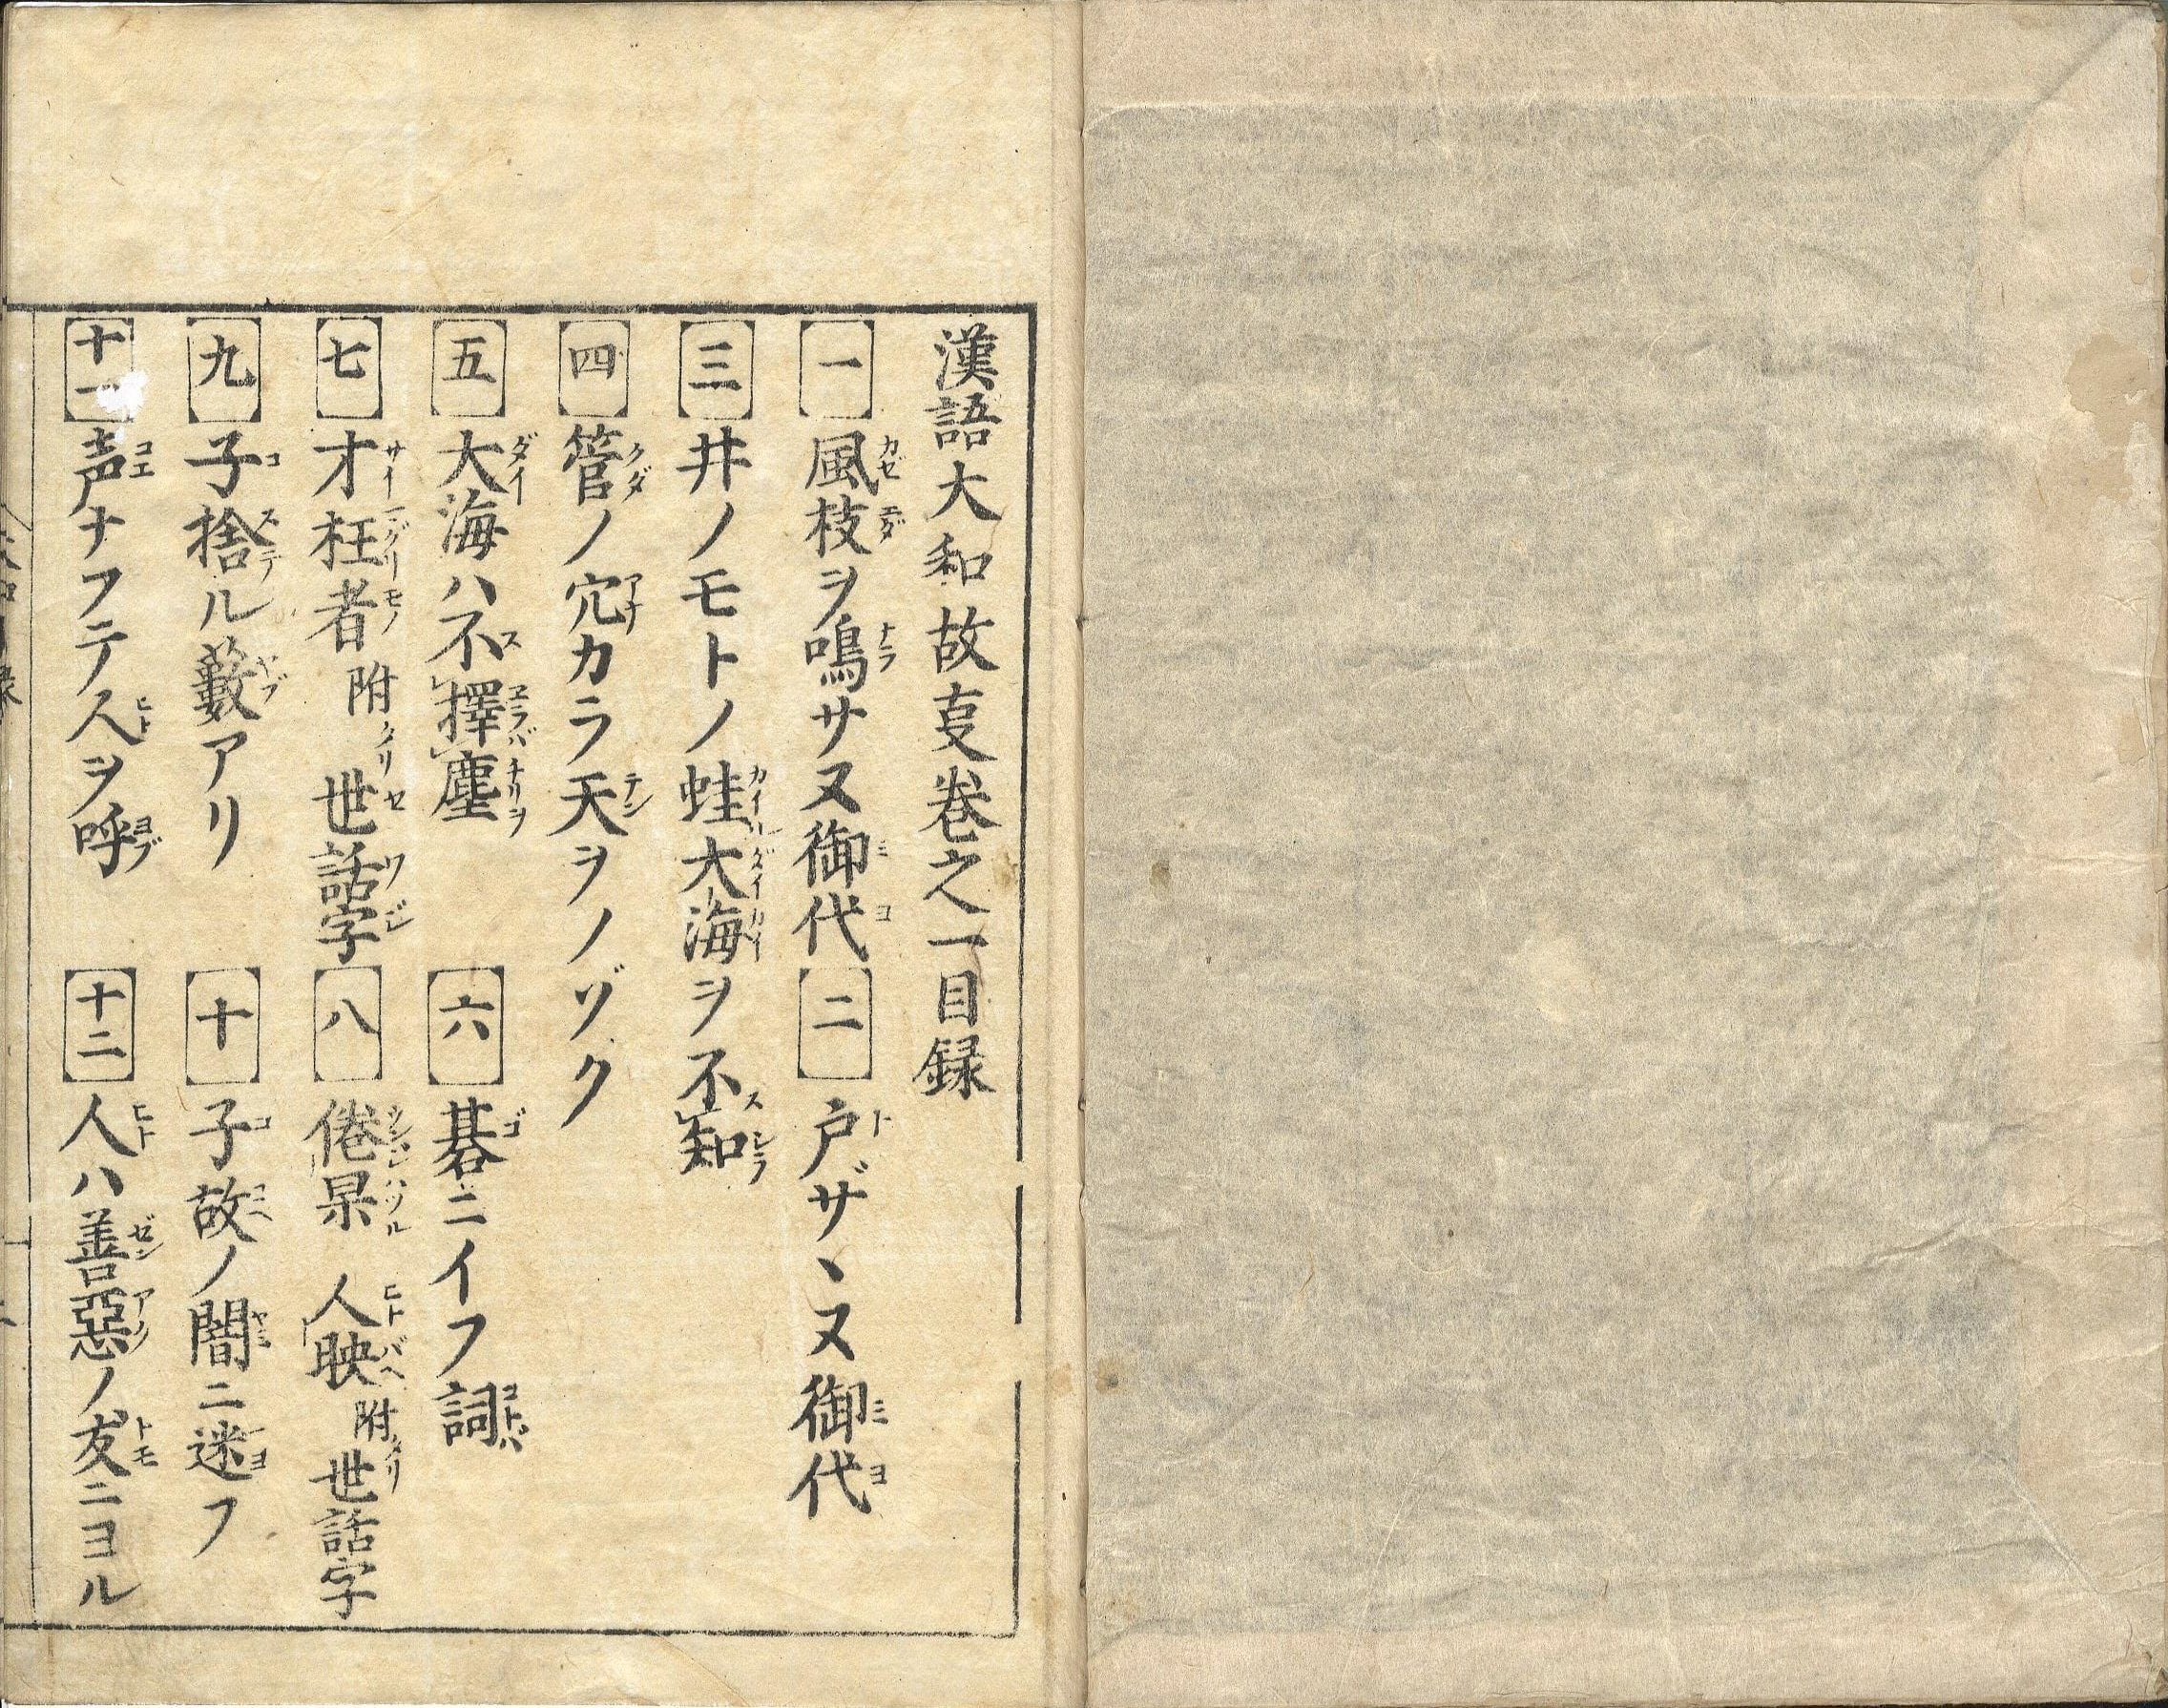 漢語大和故叓巻之一目録
一 風枝ヲ鳴サヌ御代 二 戸ザヽヌ御代
三 井ノモトノ蛙大海ヲ不知
四 管ノ穴カラ天ヲノゾク
五 大海ハ不擇塵 六 碁ニイフ詞
七 才枉者 附 世話字 八 倦杲 人映 附 世話字
九 子捨ル藪アリ 十 子故ノ闇ニ迷フ
十一 声ナフテ人ヲ呼 十二 人ハ善惡ノ友ニヨル